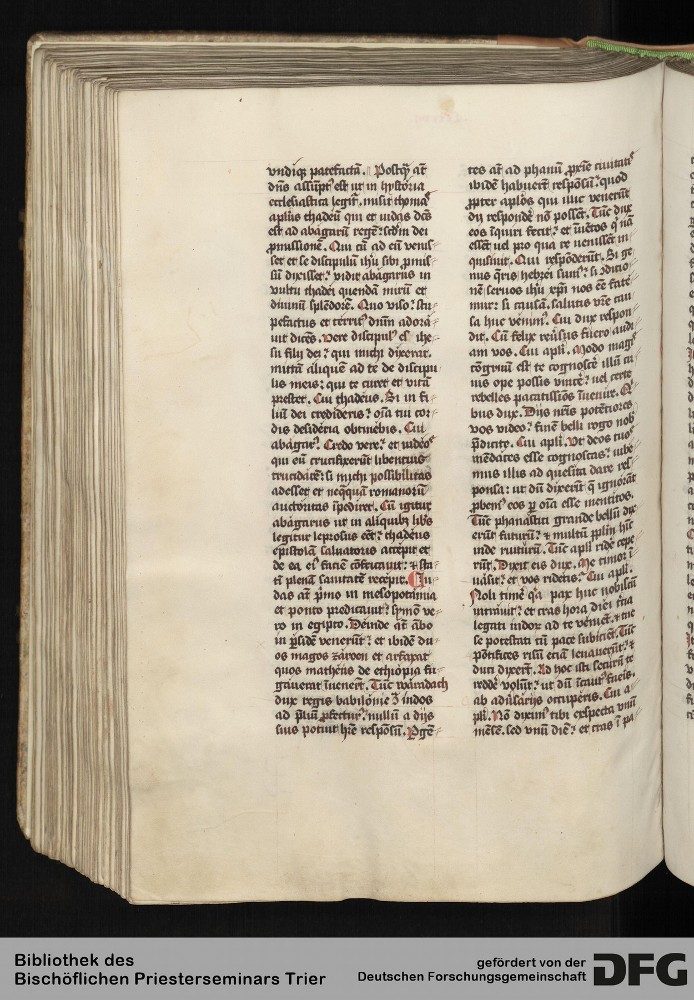 vndiqȝ patefactā. Postq̄ꝫ aūt
dn̄s assūpt⁹ est ut in hystoria
ecclesiastica legit᷑. misit thomas
apl̄us thadeū qui et iudas dc̄s
est ad abagarū regē: scd̄m dei
ꝓmissionē. Qui cū ad eū venis-
set et se discipulū ihū sibi ꝓmis-
sū dixisset: vidit abagarus in
vultu thadei quendā mirū et
diuinū splēdorē. Quo viso: stu-
pefactus et territ⁹ dn̄m adora-
uit dicēs. vere discipul⁹ es ihe-
su filij dei: qui michi dixerat.
mittā aliquē ad te de discipu
lis meis: qui te curet et vitā
prestet. Cui thadeus. Si in fi-
liū dei credideris: oīa tui cor-
dis desideria obtinebis. Cui
abagar⁹. Credo vere: et iudeos
qui eū crucifixerūt libentius
trucidarē: si michi possibilitas
adesset et neq̄quā romanorū
auctoritas īpediret. Cū igitur
abagarus ut in aliquibȝ libris
legitur leprosus eēt: thadeus
epistolā saluatoris accepit et
de ea ei⁹ faciē cōfricauit: ⁊ sta-
tī plenā sanitatē recepit. Iu-
das aūt p̄mo in mesopotamia
et ponto predicauit: symō ve-
ro in egipto. Deinde aūt ābo
in ꝑsidē venerūt: et ibidē du-
os magos zaroen et arfaxat
quos matheus de ethiopia fu-
gauerat īuenerūt. Tūc waradach
dux regis babilonie ꝯ̄ indos
ad p̄liū ꝓfectur⁹: nullū a dijs
suis potuit hr̄e respōsū. Pgē-
tes aūt ad phanū ꝓxīe ciuitatis
ibidē habuerūt respōsū: quod
ꝓpter aplōs qui illuc venerūt
dij respondē nō possēt. Tūc dux
eos īquiri fecit: et īuētos q̄ nā
essēt uel pro qua re uenissēt in-
quisiuit. Qui respōderūt. Si ge-
nus q̄ris hebrei sum⁹: si ꝯditio-
nē seruos ihū xpī nos eē fate-
mur: si causā. salutis vr̄e cau-
sa huc venim⁹. Cui dux respon-
dit. Cū felix reūsus fuero audi-
am vos. Cui apl̄i. Modo magis
cōgruū est te cognoscē illū cu-
ius ope possis vincē: uel certe
rebelles pacatissios īuenire. Q⁹
bus dux. Dijs nr̄is potētiores
vos video: finē belli rogo nob̄
p̄dicite. Cui apl̄i. Ut deos tuos
mēdaces esse cognoscas: iube-
mus illis ad quesita dare res-
ponsa: ut dū dixerīt q̄ ignorāt
ꝓbem⁹ eos ꝑ oīa esse mentitos.
Tūc phanatici grande bellū dix-
erūt futurū: ⁊ multū ꝓplm̄ hīc
inde ruiturū. Tūc apl̄i ridē cepe
rūt. Dixit eis dux. Me timor ī
uasit: et vos ridetis: Cui apl̄i.
Noli timē q̄a pax huc nobiscū
intrauit: et cras hora diei tercia
legati indorū ad te veniēt. ⁊ tue
se potestati cū pace subicīēt. Tūc
pōtifices risū etiā leuauerūt: ⁊
duci dixerūt. Ad hoc isti securū te
reddē volūt: ut dū īcaut⁹ fueris.
ab adūsarijs occuperis. Cui a-
pl̄i. Nō diximus tibi exspecta vnū
mēsē. sed vnū diē: et cras ī pa-
Bibliothek des
Bischöflichen Priesterseminars Trier
gefördert von der
Deutschen Forschungsgemeinschaft
DFG